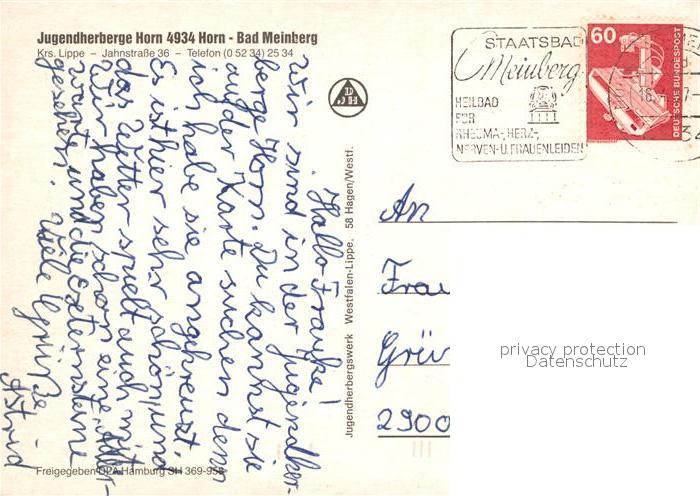 Jugendherberge Horn 4934 Horn - Bad Meinberg
Krs. Lippe – Jahnstraße 36 – Telefon (0 52 34) 25 34
Hallo Frauke!
Wir sind in der Jugendher-
berge Horn. Du kannst sie
auf der Karte suchen denn
ich habe sie angekreuzt.
Es ist hier sehr schön und
das Wetter spielt auch mit.
Wir haben schon eine
warte und die Externsteine
gesehen. Viele Grüße
Astrid
Freigegeben DPA Hamburg SH 369-958
Jugendherbergswerk Westfalen-Lippe, 58 Hagen/Westf.
DJH
STAATSBAD
Meinberg
HEILBAD
FÜR
RHEUMA-, HERZ-,
NERVEN- U. FRAUENLEIDEN
60
DEUTSCHE BUNDESPOST
An
Frau
Grü
2900
privacy protection
Datenschutz